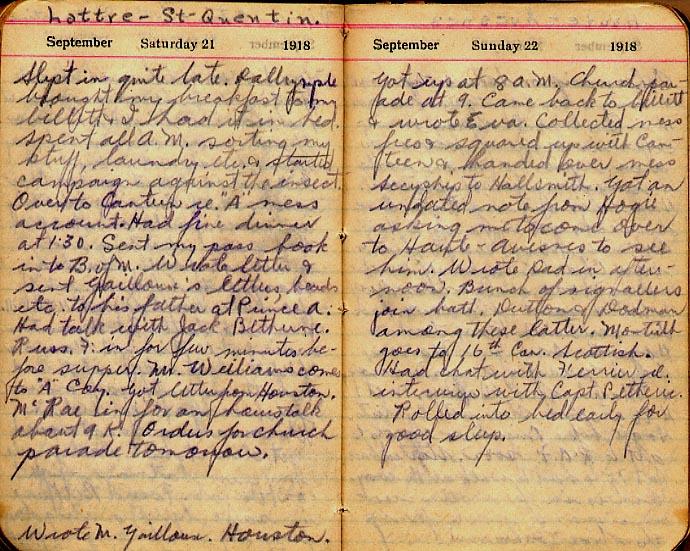 Lattre - St-Quentin.
September Saturday 21 1918
Slept in quite late. Dalrymple
brought my breakfast to my
billet & I had it in bed.
spent all A.M. sorting my
stuff, laundry etc & started
campaign against the insect.
Over to Canteen re. "A" mess
account. Had fine dinner
at 1:30. Sent my pass book
in to B. of M. Wrote letter &
sent Gailloux's letters, beads
etc. to his father at Prince A.
Had talk with Jack Bethune.
Russ. F. in for few minutes be-
fore supper. Mr. Williams comes
to "A" Coy. Got letter from Houston.
McRae in for an hours talk
about 9 K. Orders for church
parade tomorrow.
Wrote M. Gailloux. Houston.
September Sunday 22 1918
Got up at 8 A.M. Church pa-
rade at 9. Came back to billet
& wrote Eva. Collected mess
fees & squared up with Can-
teen & handed over mess
secyship to Hallsmith. Got an
undated note from Hogie
asking me to come over
to Haute-Avesnes to see
him. Wrote Dad in after-
noon. Bunch of signallers
join batt. Dutton & Dodman
among these latter.
goes to 16th Can. Scottish.
Had chat with Ferrier re.
interview with Capt. Petherie.
Rolled into bed early for
good sleep.